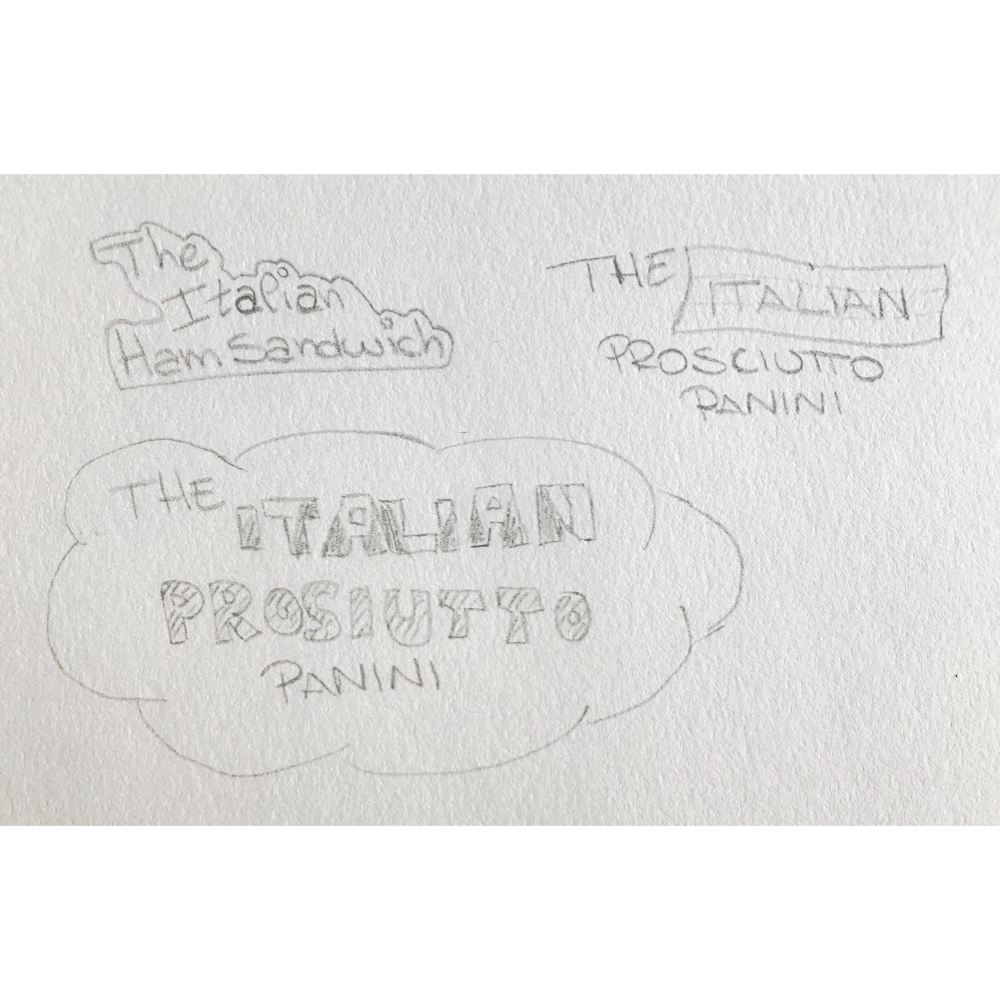 The
Italian
Ham Sandwich
THE ITALIAN
PROSCIUTTO
PANINI
THE ITALIAN
PROSIUTTO
PANINI